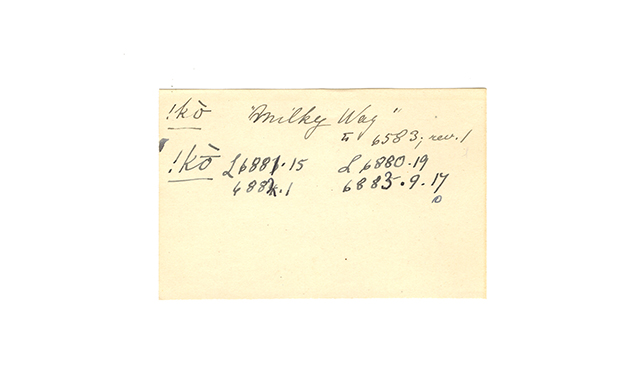 !kò "Milky Way"
6583; rev. 1
!kò̄ L 6881.15 L 6880.19
6882.1 6885.9.17